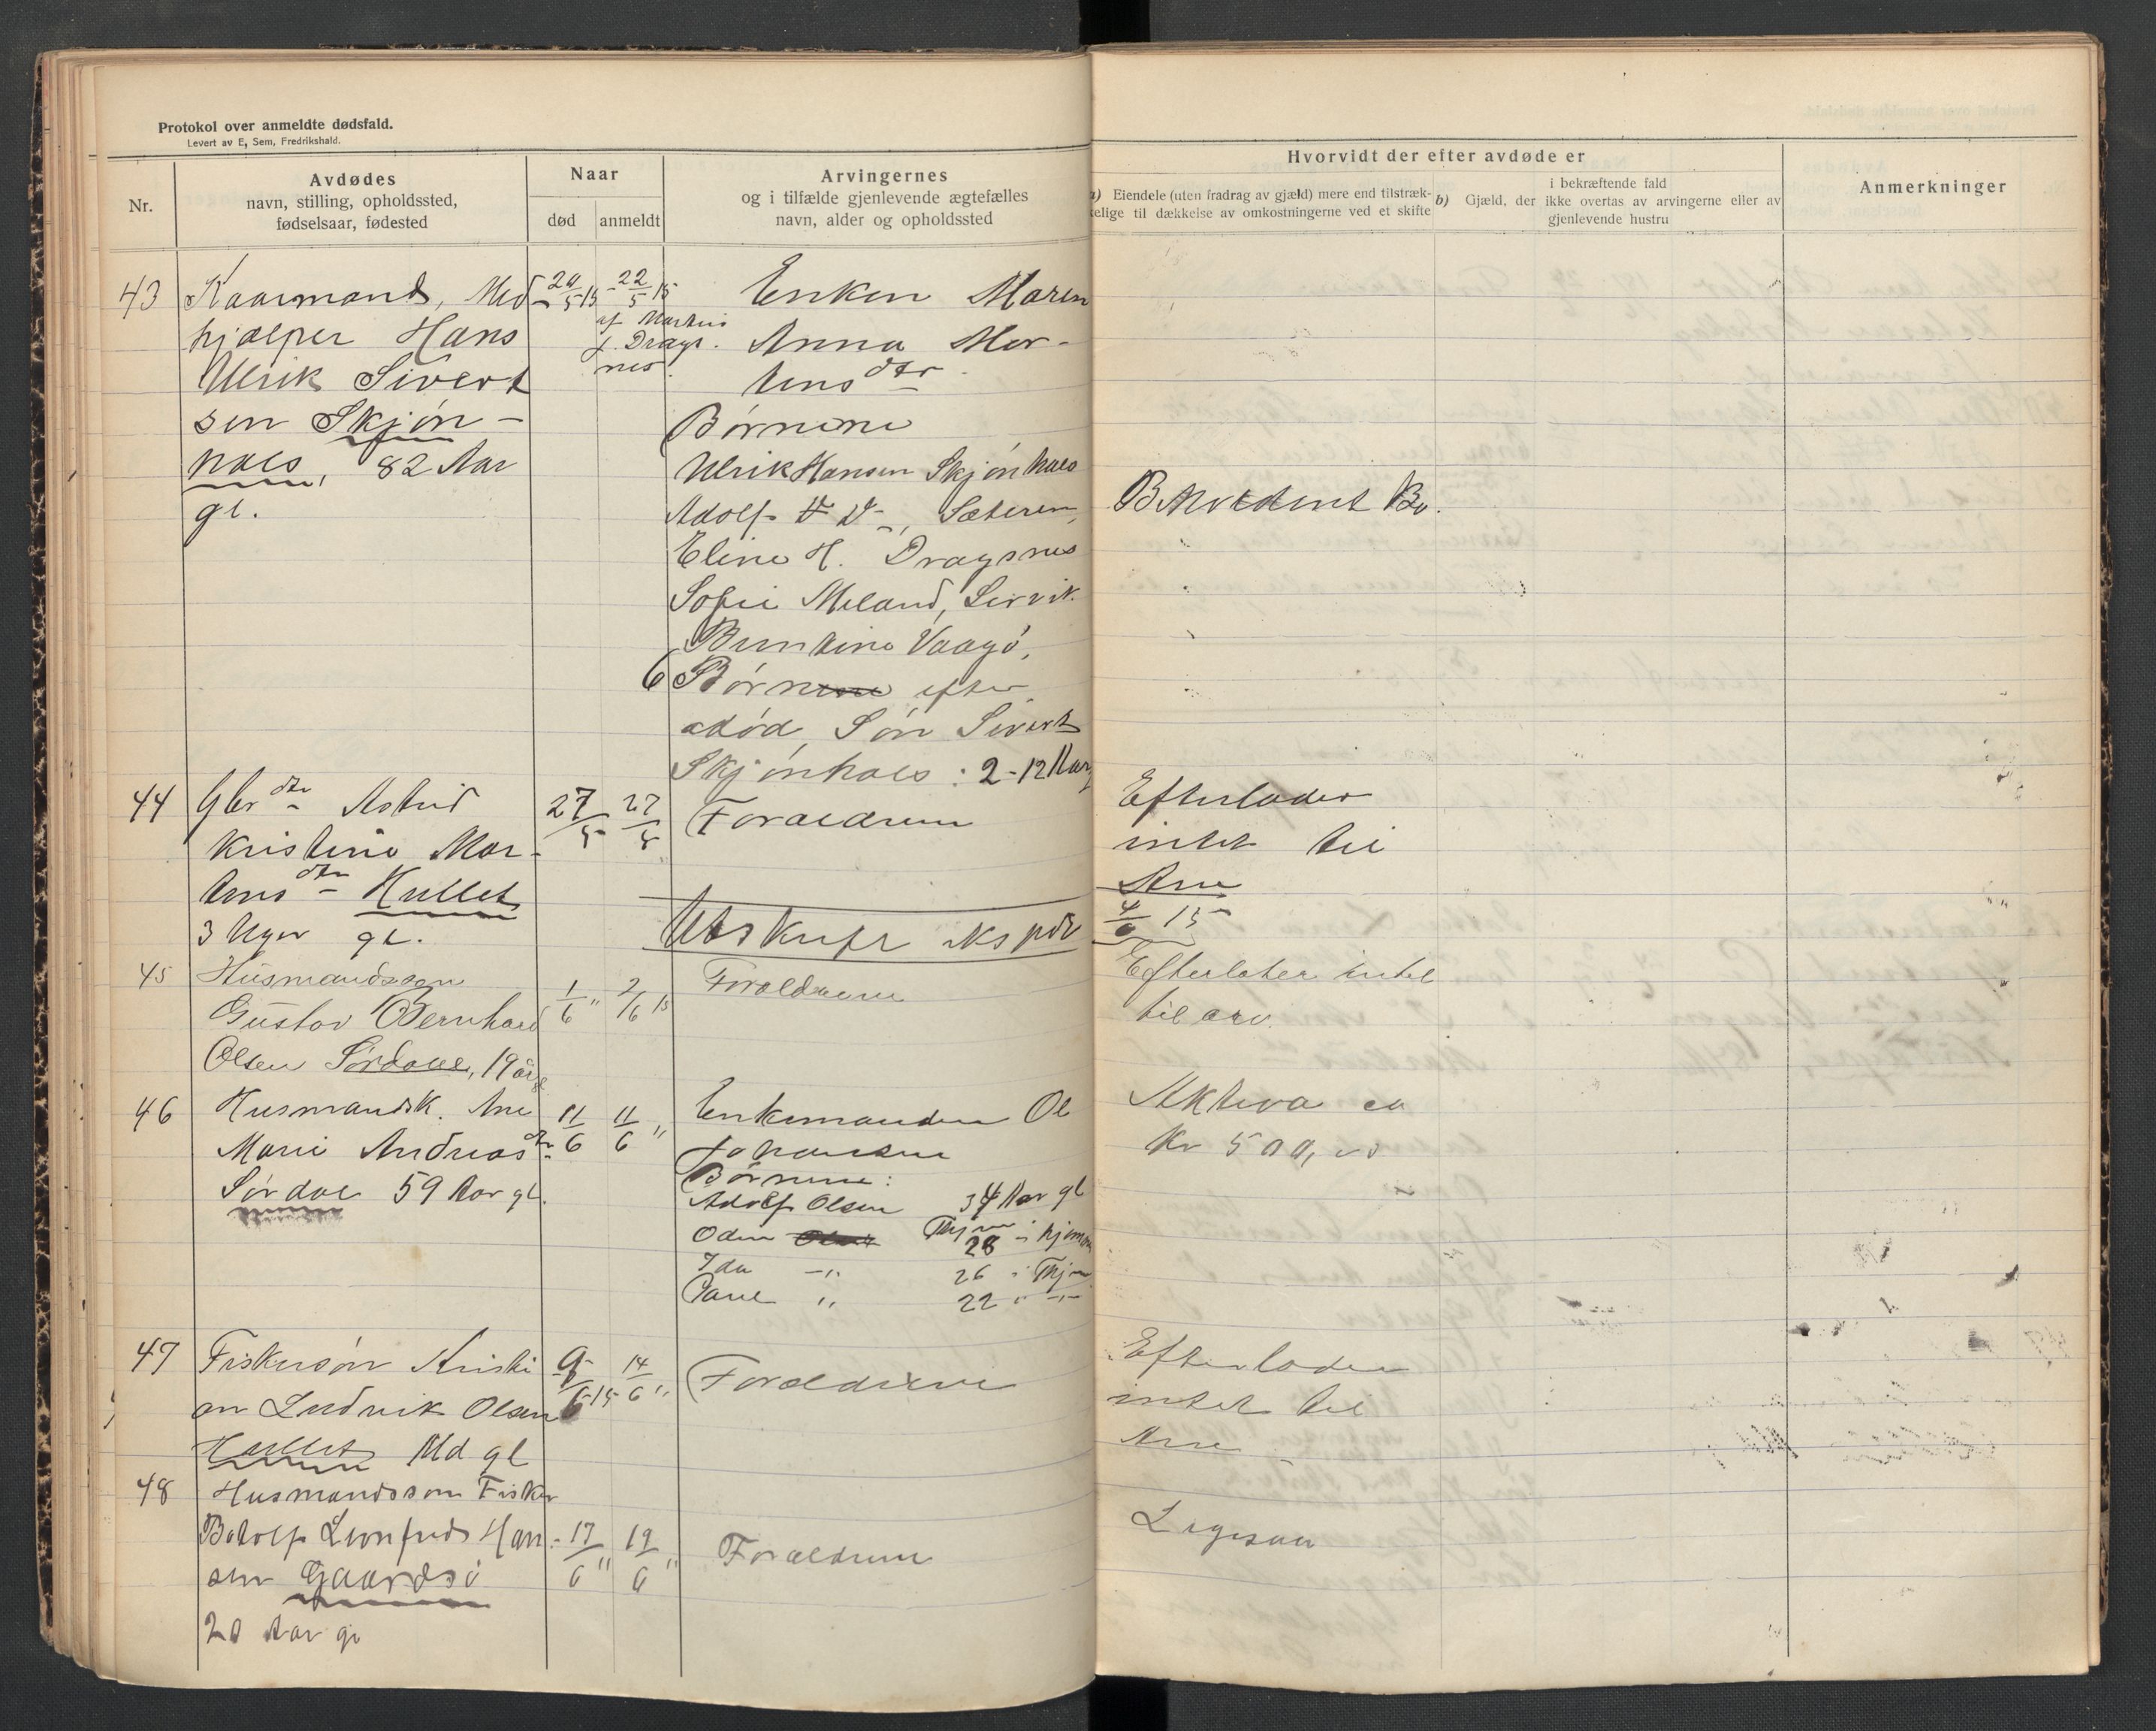 Protokol over anmeldte dødsfald.
Levert av E, Sem, Fredrikshald.
Nr.
Avdødes
navn, stilling, opholdssted,
fødselsaar, fødested
Naar
død
anmeldt
Arvingernes
og i tilfælde gjenlevende ægtefælles
navn, alder og opholdssted
Hvorvidt der efter avdøde er
a) Eiendele (uten fradrag av gjæld) mere end tilstræk-
kelige til dækkelse av omkostningerne ved et skifte
b) Gjæld, der
i bekræftende fald
ikke overtas av arvingerne eller av
gjenlevende hustru
Anmerkninger
43
Kaarmand, Med-
hjælper Hans
Ulrik Sivert
sen Skjøn-
hals, 82 Aar
gl.
20/5 15
22/5 15
af Martin
J. Drags-
nes.
Enken Maren
Anna Mor-
tens dtr
Børnene
Ulrik Hansen Skjønhals
Adolf H D-, Sæteren,
Eline H. Dragsnes
Sofie Meland, Servik
Buntine Vaagø,
6 Børnene efter
adød, Søn Sivert
Skjønhals: 2-12 Aar
Bo.
44
Gbr dtr Astrid
Kristine Mar-
tens dtr - Hullet
3 Uger gl.
27/5
27/5
Forældrene
Efterlader
intet til
Arv
Utskrift eksped
4/6 15
45
Husmandssøn
Gustav Bernhard
Olsen Sørdal, 19 år gl
1/6 "
2/6 15
Forældrene
Efterlater intet
til arv.
46
Husmandsk. Ane
Marie Andreas dtr
Sørdal 59 Aar gl.
11/6
11/6 "
Enkemanden Ol
Johansen
Børnene:
Adolf Olsen 34 Aar gl
Odin Olsen 28 i hjemme
Ida -"- 26 i
" 22 " -"-
Aktiva ca
Kr 500,00
47
Fiskersøn Kristi
an Ludvik Olsen
Hullet Md gl
9/6 15
14/6 "
Forældrene
Efterlader
intet til
Arv
48
Husmandssøn Fisker
Botolf Leonfred Han-
sen Gaardsø
20 Aar gl
17/6 "
19/6 "
Forældrene
Ligesaa